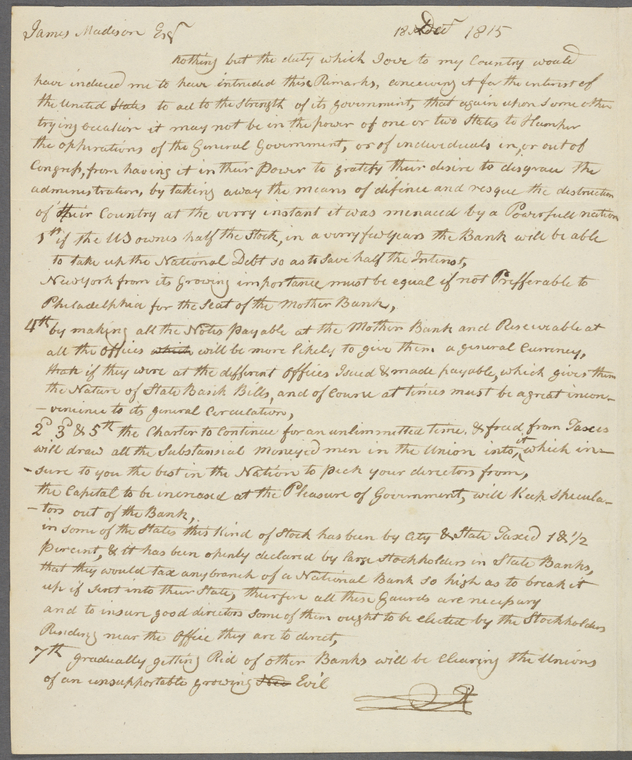 James Madison Esqr 18 Decr 1815
nothing but the duty which I owe to my Country would
have induced me to have intruded these Remarks, conceiving it for the interest of
the United States to ad to the strength of its government, that again upon some other
trying occasion it may not be in the power of one or two States to Hamper
the opperations of the General Government, or of individeuals in, or out of
Congress, from having it in their Power to gratify their desire to disgrace the
administration, by taking away the means of defince and resque the distruction
of their Country at the verry instant it was menaced by a Powerfull nation
1st if the US ownes half the Stock, in a verry few years the Bank will be able
to take up the National Debt so as to save half the Interest,
New York from its Growing importance must be equal if not Prefferable to
Philadelphia for the Seat of the Mother Bank,
4th by making all the Notes payable at the Mother Bank and Receiveable at
all the offices which will be more likely to give them a general Currency,
than if they were at the different offices Issued & made payable, which gives them
the Nature of State Bank Bills, and of course at times must be a great incon-
-venience to its general Circulation,
2d 3d & 5th the Charter to Continue for an unlimmitted time, & freed from Taxes
will draw all the Substansial moneyed men in the Union into it, which in-
-sure to you the best in the Nation to pick your directors from,
the Capital to be increased at the Pleasure of Government, will keep specula-
-tors out of the Bank,
in some of the States this kind of Stock has been by City & State Taxed 1 & 1/2
percent, & it has been openly declared by large Stockholders in State Banks,
that they would tax any branch of a National Bank so high as to break it
up if sent into their State, therefore all these Gaurds are necissary
and to insure good directors some of them ought to be elected by the Stockholders
Residing near the office they are to direct,
7th gradually getting Rid of other Banks will be clearing the Unions
of an unsupportable growing Evil